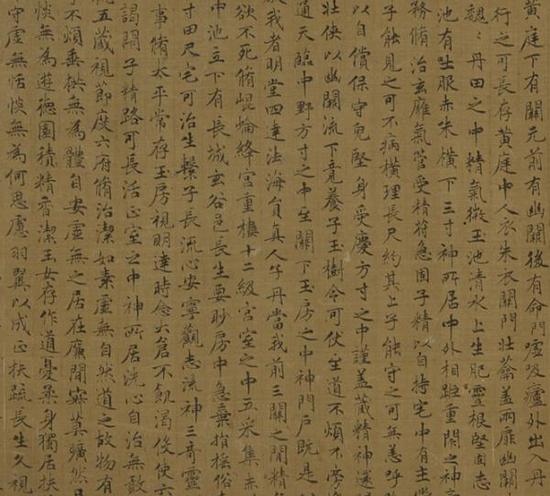 黃庭下有關元前有幽闕後有命門噓吸廬外出入丹
行之可長存黃庭中人衣朱衣關門壯蘥蓋兩扉幽闕
魏丹田之中精氣微玉池清水上生肥靈根堅固志
池有士服赤朱橫下三寸神所居中外相距重閉之神
務脩治玄廱氣管受精符急固子精以自持宅中有士常
子能見之可不病橫理長尺約其上子能守之可無恙呼
以自償保守皃堅身受慶方寸之中謹蓋藏精神還
壯俠以幽闕流下竟養子玉樹令可仗至道不煩不旁
通天臨中野方寸之中至關下玉房之中神門戶既是
我者明堂四達法海員真人子丹當我前三關之間精
欲不死脩崐崘絳宮重樓十二級宮室之中五采集赤
中池立下有長城玄谷邑長生要眇房中急棄捐搖俗
寸田尺宅可治生繫子長流心安寧觀志流神三奇靈
事脩太平常存玉房視明達時念大倉不飢渴役使六
謁閉子精路可長活正室之中神所居洗心自治無敢
視五藏視節度六府脩治潔如素虛無自然道之故物有
不煩垂拱無為體自安虛無之居在廉間寂莫曠然
惔無為遊德園積精香潔玉女存作道憂柔身獨居扶
守虛無恬惔無為何思慮羽翼以成正扶疏長生久視